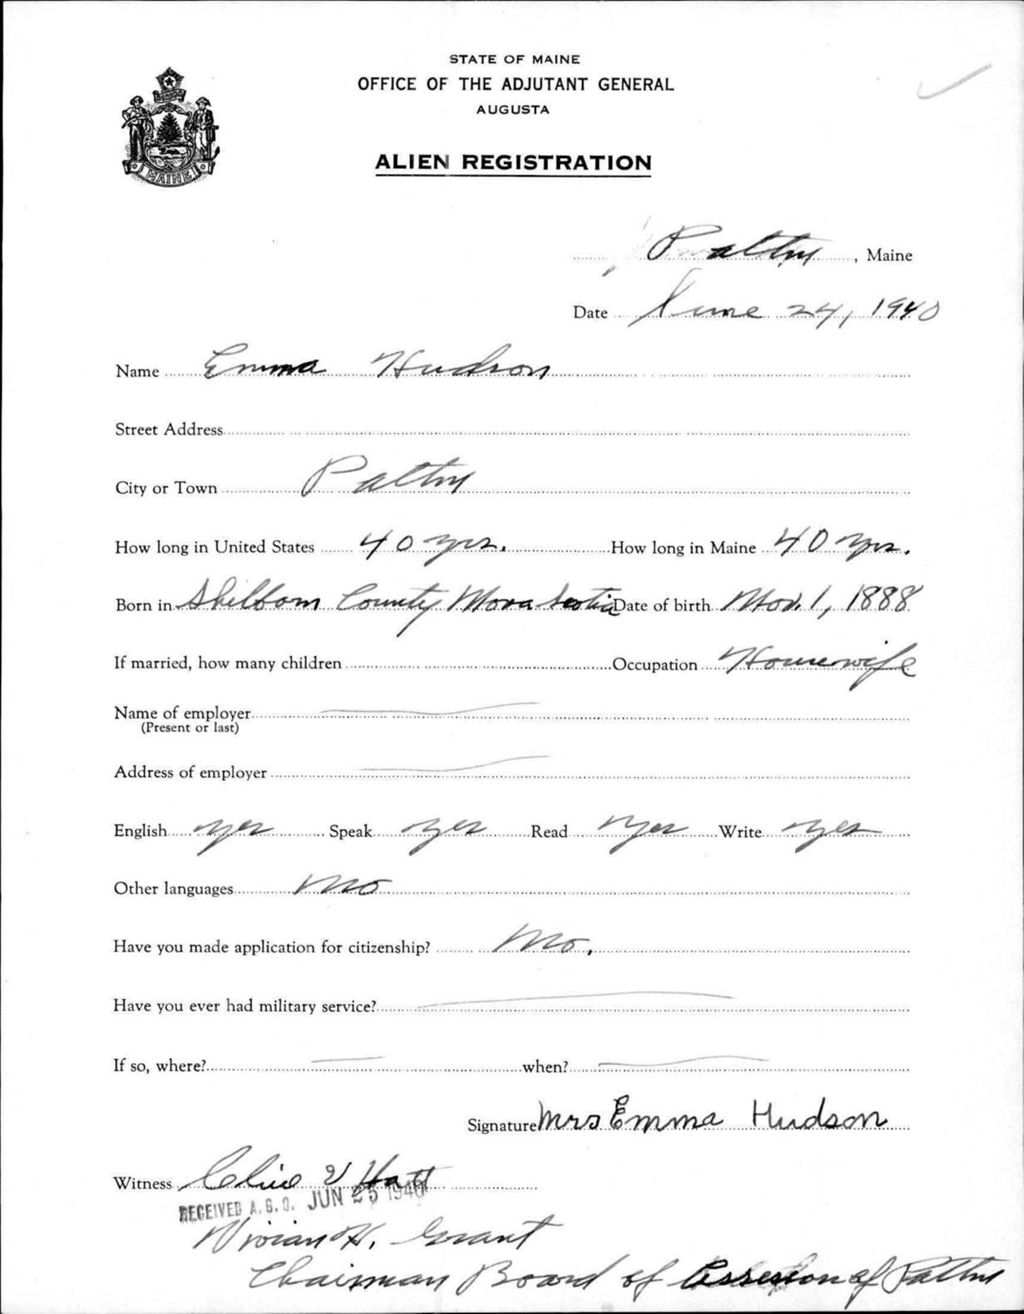 STATE OF MAINE
OFFICE OF THE ADJUTANT GENERAL
AUGUSTA
ALIEN REGISTRATION
MAINE
Patten, Maine
Date June 24, 1940
Name Emma Hudson
Street Address
City or Town Patten
How long in United States 40 yrs. How long in Maine 40 yrs.
Born in County Nova Scotia Date of birth Nov. 1, 1888
If married, how many children Occupation Housewife
Name of employer
(Present or last)
Address of employer
English yes Speak yes Read yes Write yes
Other languages no
Have you made application for citizenship? No.
Have you ever had military service?
If so, where? when?
Signature Mrs Emma Hudson
Witness
RECEIVED A. G. O. JUN 25 1940
Vivian H. Grant
Chairman Board of of Patten